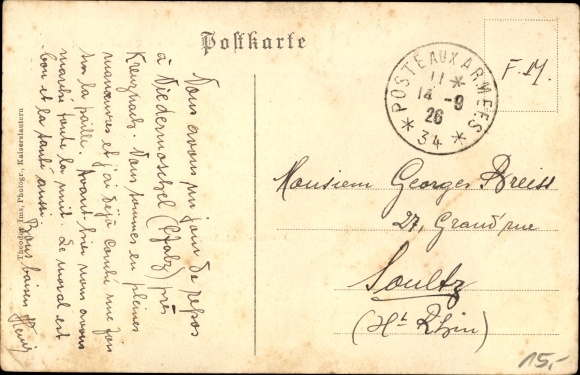 Postkarte
Nous avons un jour de repos
à Niedermoschel (Pfalz) près
Kreuznach. Nous sommes en pleines
manœuvres et j'ai déjà couché une fois
sur la paille. Avant-hier nous avons
marché toute la nuit. Le moral est
bon et la santé aussi.
Bons baisers
Theodor Imm, Photogr., Kaiserslautern
POSTE AUX ARMEES
11 *
14 -9
26
* 34 *
F.M.
Monsieur Georges Dreiss
27, Grand'rue
Soultz
(Ht Rhin)
15,-